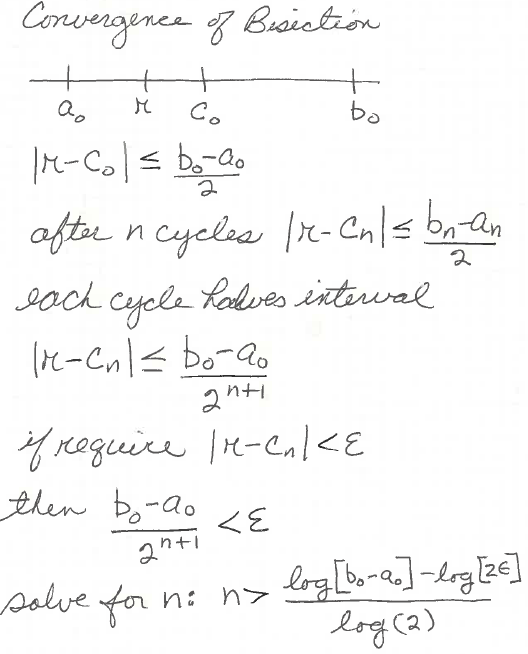 Convergence of Bisection
a₀ r c₀ b₀
|r-c₀| ≤ (b₀-a₀)/2
after n cycles |r-cₙ| ≤ (bₙ-aₙ)/2
each cycle halves interval
|r-cₙ| ≤ (b₀-a₀)/2ⁿ⁺¹
if require |r-cₙ| < ε
then (b₀-a₀)/2ⁿ⁺¹ < ε
solve for n: n > (log[b₀-a₀]-log[2ϵ])/log(2)